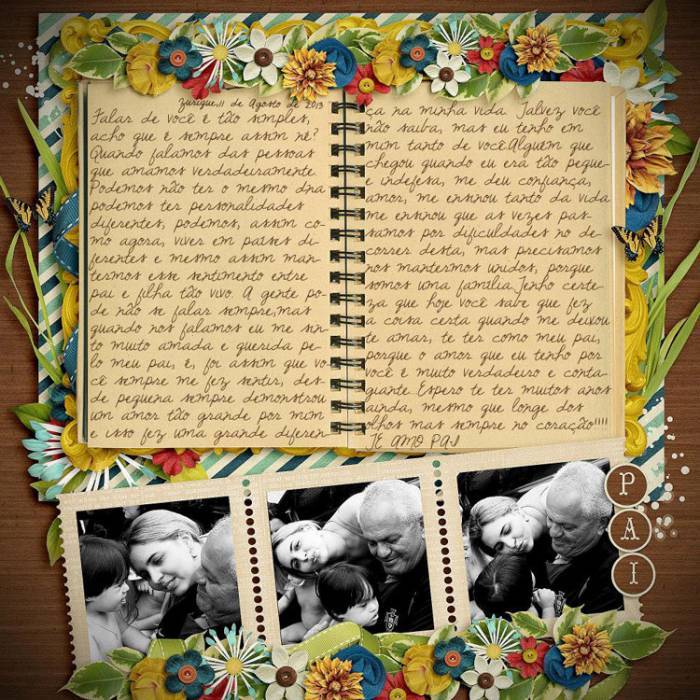 Zurique, 11 de Agosto de 2013
Falar de você é tão simples,
acho que é sempre assim né?
Quando falamos das pessoas
que amamos verdadeiramente
Podemos não ter o mesmo dna
podemos ter personalidades
diferentes, podemos, assim co-
mo agora, viver em países di-
ferentes e mesmo assim man-
termos esse sentimento entre
pai e filha tão vivo. A gente po-
de não se falar sempre, mas
quando nos falamos eu me sin-
to muito amada e querida pe-
lo meu pai, e, foi assim que vo-
cê sempre me fez sentir, des-
de pequena sempre demonstrou
um amor tão grande por mim
e isso fez uma grande diferen-
ça na minha vida. Talvez você
não saiba, mas eu tenho em
mim tanto de você. Alguém que
chegou quando eu era tão peque-
e indefesa, me deu confiança,
amor, me ensinou tanto da vida
me ensinou que as vezes pas-
samos por dificuldades no de-
correr desta, mas precisamos
nos mantermos unidos, porque
somos uma família. Tenho certe-
za que hoje você sabe que fez
a coisa certa quando me deixou
te amar, te ter como meu pai,
porque o amor que eu tenho por
você é muito verdadeiro e conta-
giante. Espero te ter muitos anos
ainda, mesmo que longe dos
olhos mas sempre no coração!!!!
TE AMO PAI
P
A
I